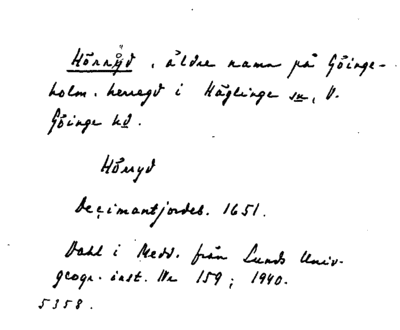 Hörröd, äldre namn på Göinge-
holm, herregd i Häglinge sn, V.
Göinge hd.
Hörryd
Decimantjordeb. 1651.
Dahl i Medd. från Lunds Univ-
geogr. inst. Nr 159; 1940.
5358.